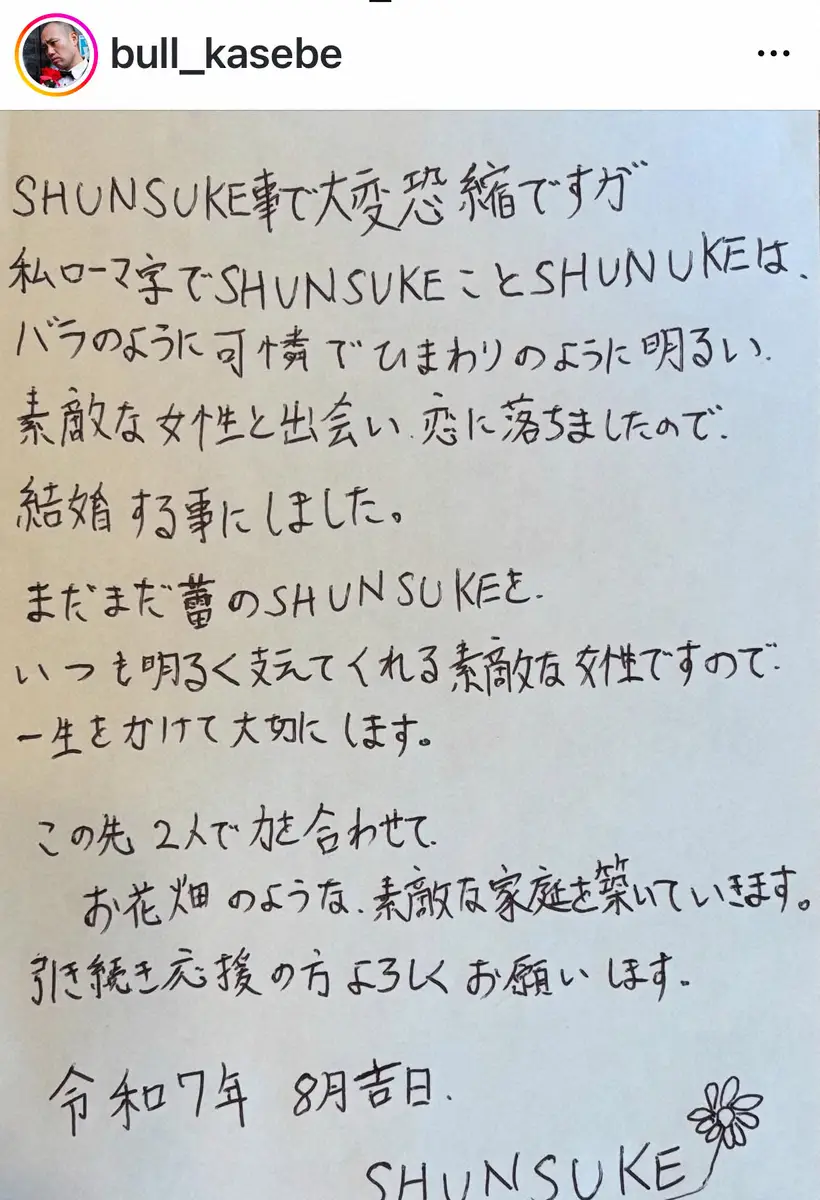 bull_kasebe
SHUNSUKE事で大変恐縮ですが
私ローマ字でSHUNSUKEことSHUNUKEは、
バラのように可憐でひまわりのように明るい、
素敵な女性と出会い、恋に落ちましたので、
結婚する事にしました。
まだまだ蕾のSHUNSUKEを、
いつも明るく支えてくれる素敵な女性ですので、
一生をかけて大切にします。
この先 2人で力を合わせて、
お花畑のような、素敵な家庭を築いていきます。
引き続き応援の方よろしくお願いします。
令和7年 8月吉日.
SHUNSUKE